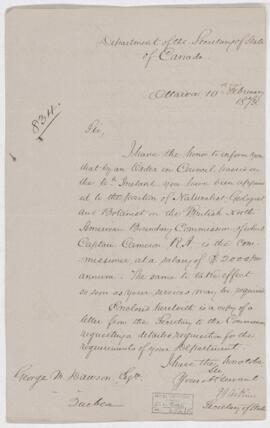 Department of the Secretary of State
of Canada.
Ottawa 10th February
1873.
834.
Sir,
I have the honor to inform you
that by an Order in Council passed on
the 6th Instant you have been appointed
to the position of Naturalist, Geologist
and Botanist on the British North
American Boundary Commission of which
Captain Cameron R.A. is the Com-
missioner at a salary of $ 2000 per
annum. The same to take effect
so soon as your services may be required
Enclosed herewith is a copy of a
letter from the Secretary to the Commission
requesting a detailed requisition for the
requirements of your Department.
I have the honor to be
Sir
Your obt servant
Secretary of State
George M. Dawson, Esqre
Quebec